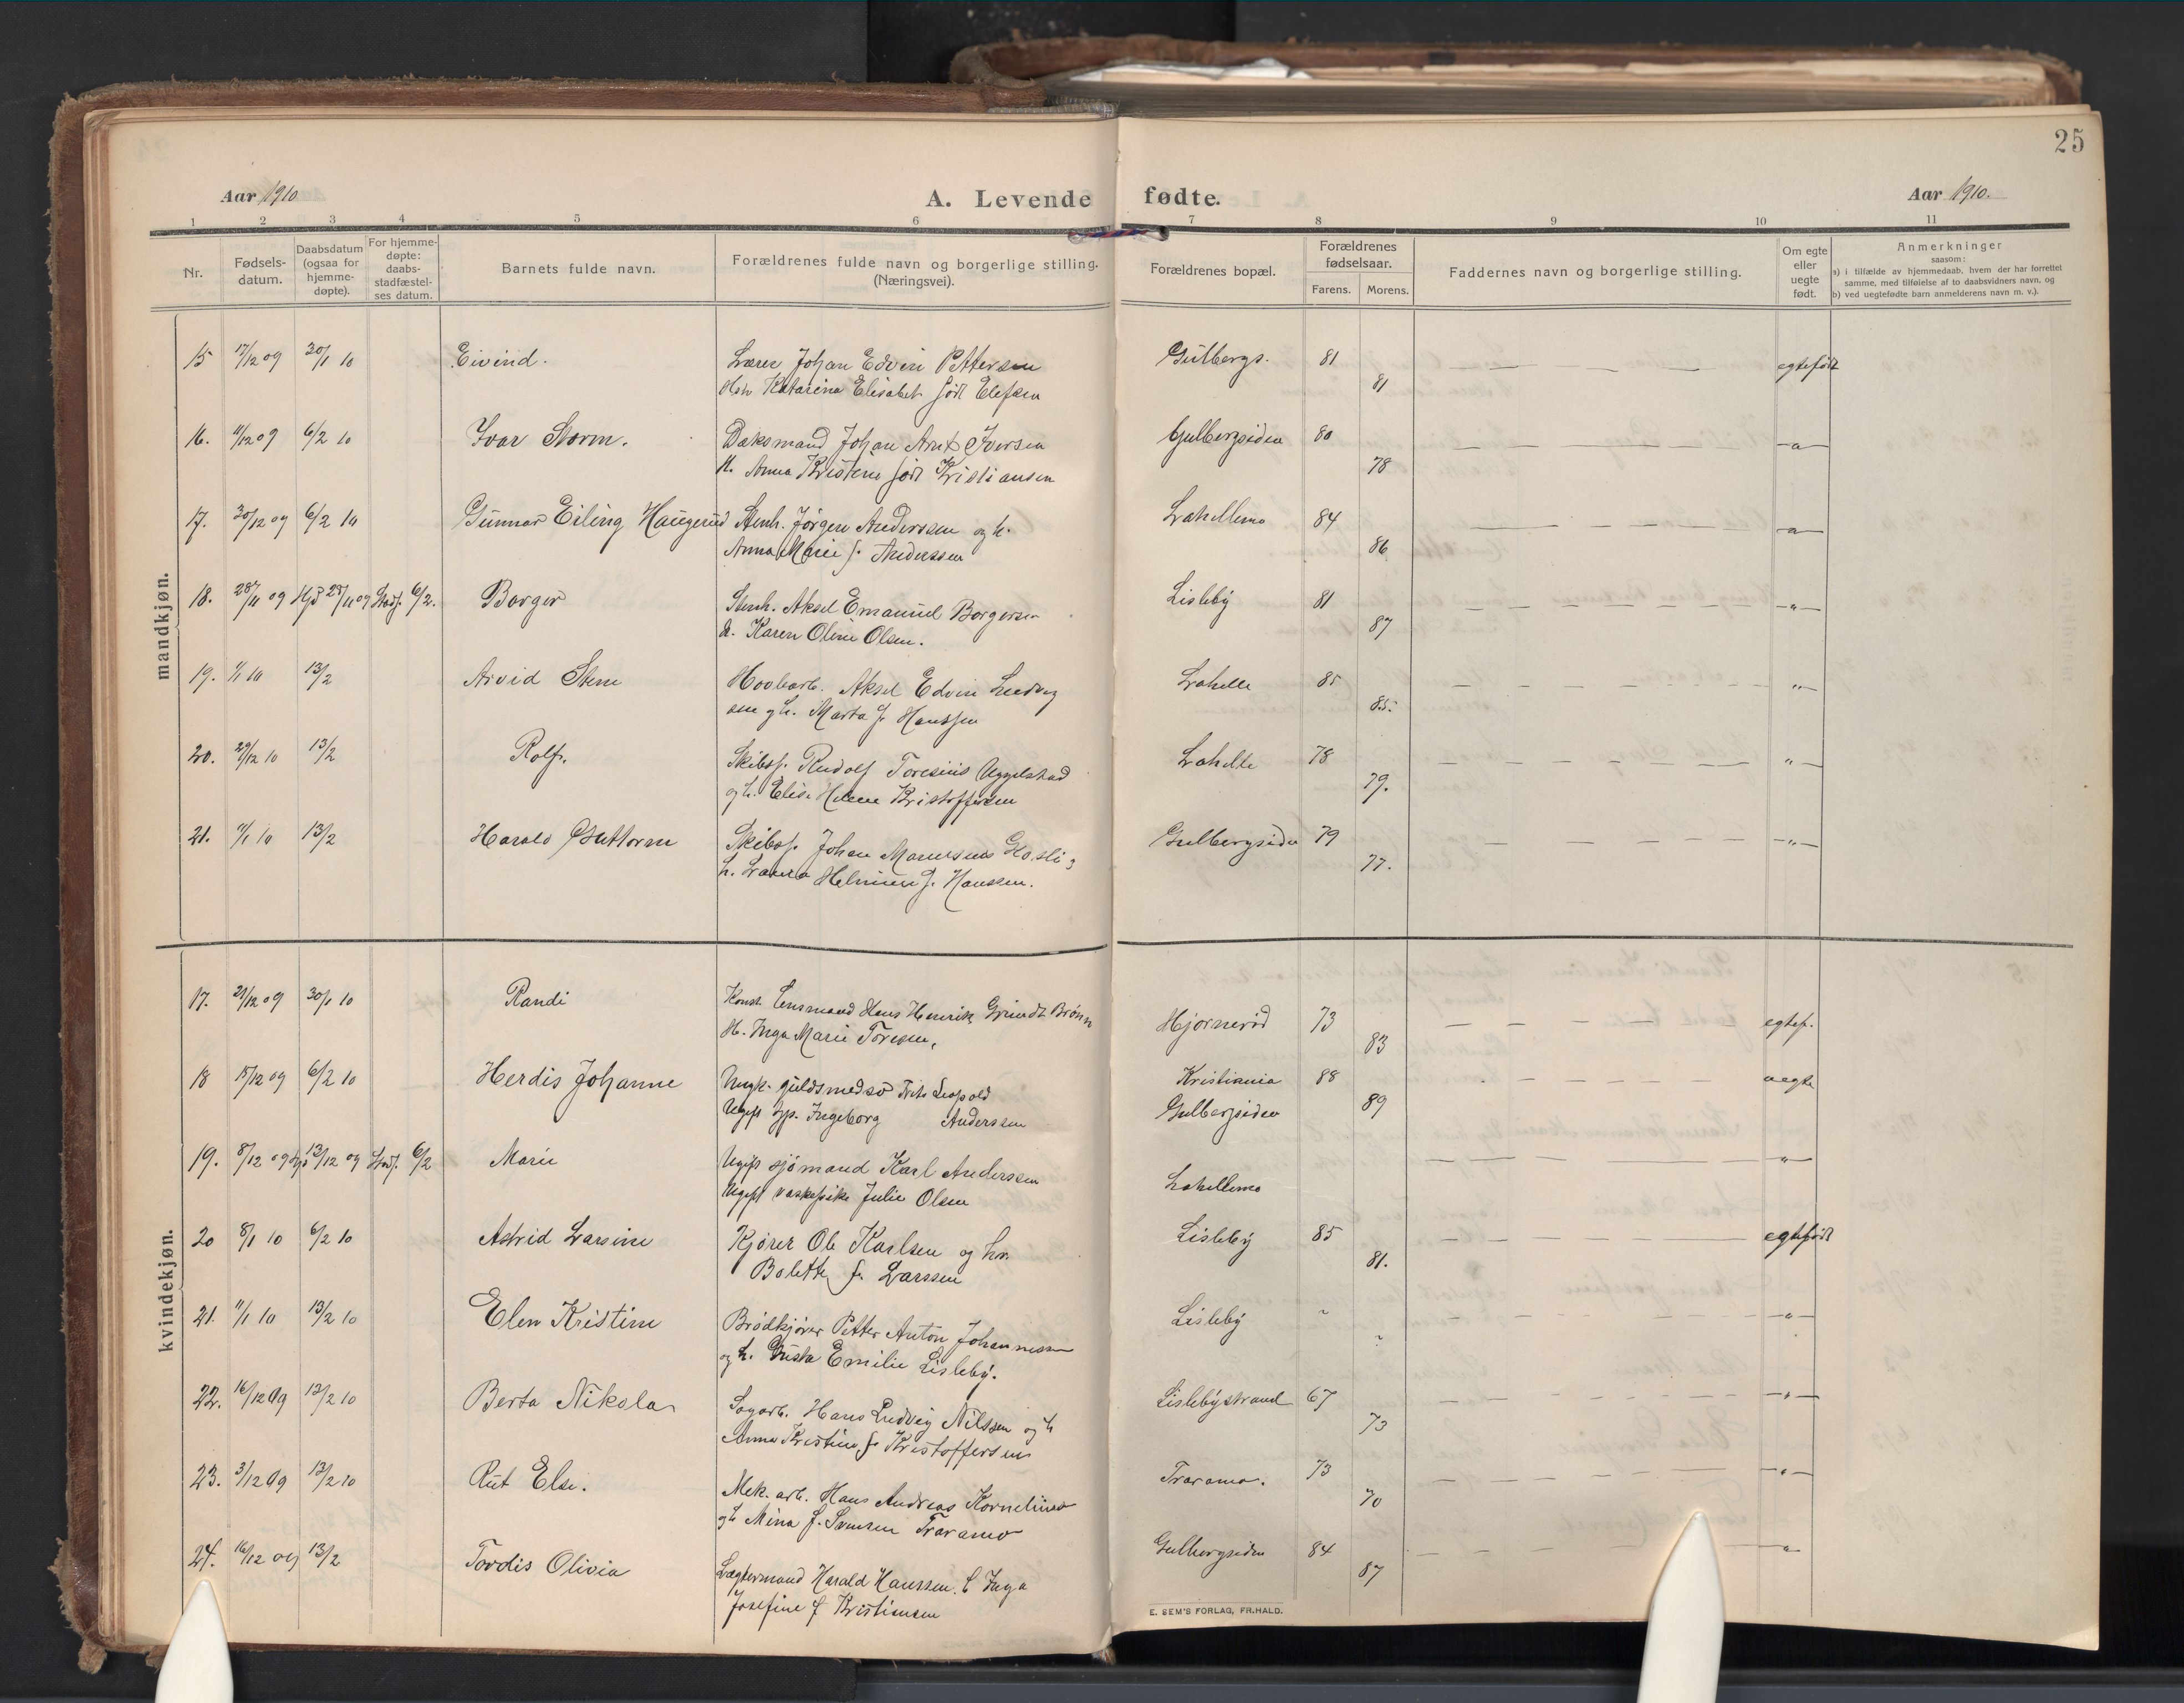 25
Aar 1910
A. Levende fødte.
Aar 1910.
1 2 3 4 5 6 7 8 9 10 11
Nr.
Fødsels-
datum.
Daabsdatum
(ogsaa for
hjemme-
døpte).
For hjemme-
døpte:
daabs-
stadfæstel-
ses datum.
Barnets fulde navn.
Forældrenes fulde navn og borgerlige stilling.
(Næringsvei).
Forældrenes bopæl.
Forældrenes
fødselsaar.
Farens. Morens.
Faddernes navn og borgerlige stilling.
Om egte
eller
uegte
født.
Anmerkninger
saasom:
a) i tilfælde av hjemmedaab, hvem der har forrettet
samme, med tilføielse af to daabsvidners navn, og
b) ved uegtefødte barn anmelderens navn m. v.).
mandkjøn.
15 17/12 09 30/1 10 Eivind. Lærer Johan Edvin Pettersen Gulbergs. 81 egtefødt
Katarina Elisabet født Elefsen 81
16. 11/12 09 6/2 10 Ivar Storm. Dæksmand Johan Arnt Iversen Gulbergsiden 80
H. Anna Kristine født Kristiansen 78
17. 30/12 09 6/2 10 Gunnar Eiling Haugerud Stenh. Jørgen Anderssen og h. Lahellemo 84
Anna Marie f. Anderssen 86
18. 28/11 09 Hjd 28/11 09 Stadf. 6/2. Borger Stenh. Aksel Emanuel Borgersen Lisleby 81
h. Karen Oline Olsen. 87
19. 1/1 10 13/2 Arvid Aksel Edvin Ludvig Lahelle 85
sen og h. Marta f. Hanssen 85.
20. 29/12 10 13/2 Rolf. Rudolf Toresius Uggelstad Lahelle 78
og h. Elise Helene Kristoffersen 79.
21. 11/1 10 13/2 Harald Guttorm Johan Gulbergsiden 79
h. Laura f. Hanssen. 77.
kvindekjøn.
17. 21/12 09 30/1 10 Randi Konst. Lensmand Hans Henrik Grindt Brønn Hjørnerød 73 egtef.
H. Inga Marie Toresen, 83
18 15/12 09 6/2 10 Herdis Johanne Ungk. guldsmedsv Frits Leopold Kristiania 88 uegte
Ugift Ingeborg Anderssen Gulbergsiden 89
19. 8/12 09 Hjd 12/12 09 Stadf. 6/2 Marie Ugift sjømand Karl Anderssen
Ugift vaskepike Julie Olsen Lahellemo
20 8/1 10 6/2 10 Astrid Larsine Kjører Ole Karlsen og hu. Lisleby 85 egtefødt
Bolette f. Larssen 81.
21. 11/1 10 13/2 10 Elen Kristine Brødkjører Petter Anton Johannessen Lisleby
og h. Gusta Emilie Lisleby.
22. 16/12 09 13/2 10 Berta Nikola Sagarb. Hans Ludvig Nilssen og h Lislebystrand 67
Anna Kristine f. Kristoffersen 73
23. 3/12 09 13/2 10 Rut Else. Mek. arb. Hans Andreas Kornelius Traramo. 73
og h Mina f. Svensen Traramo 70
24. 16/12 09 13/2 Tordis Olivia Lægtermand Harald Hanssen. Inga Gulbergsiden 84
Josefine f Kristiansen 87
E. SEM'S FORLAG, FR.HALD.